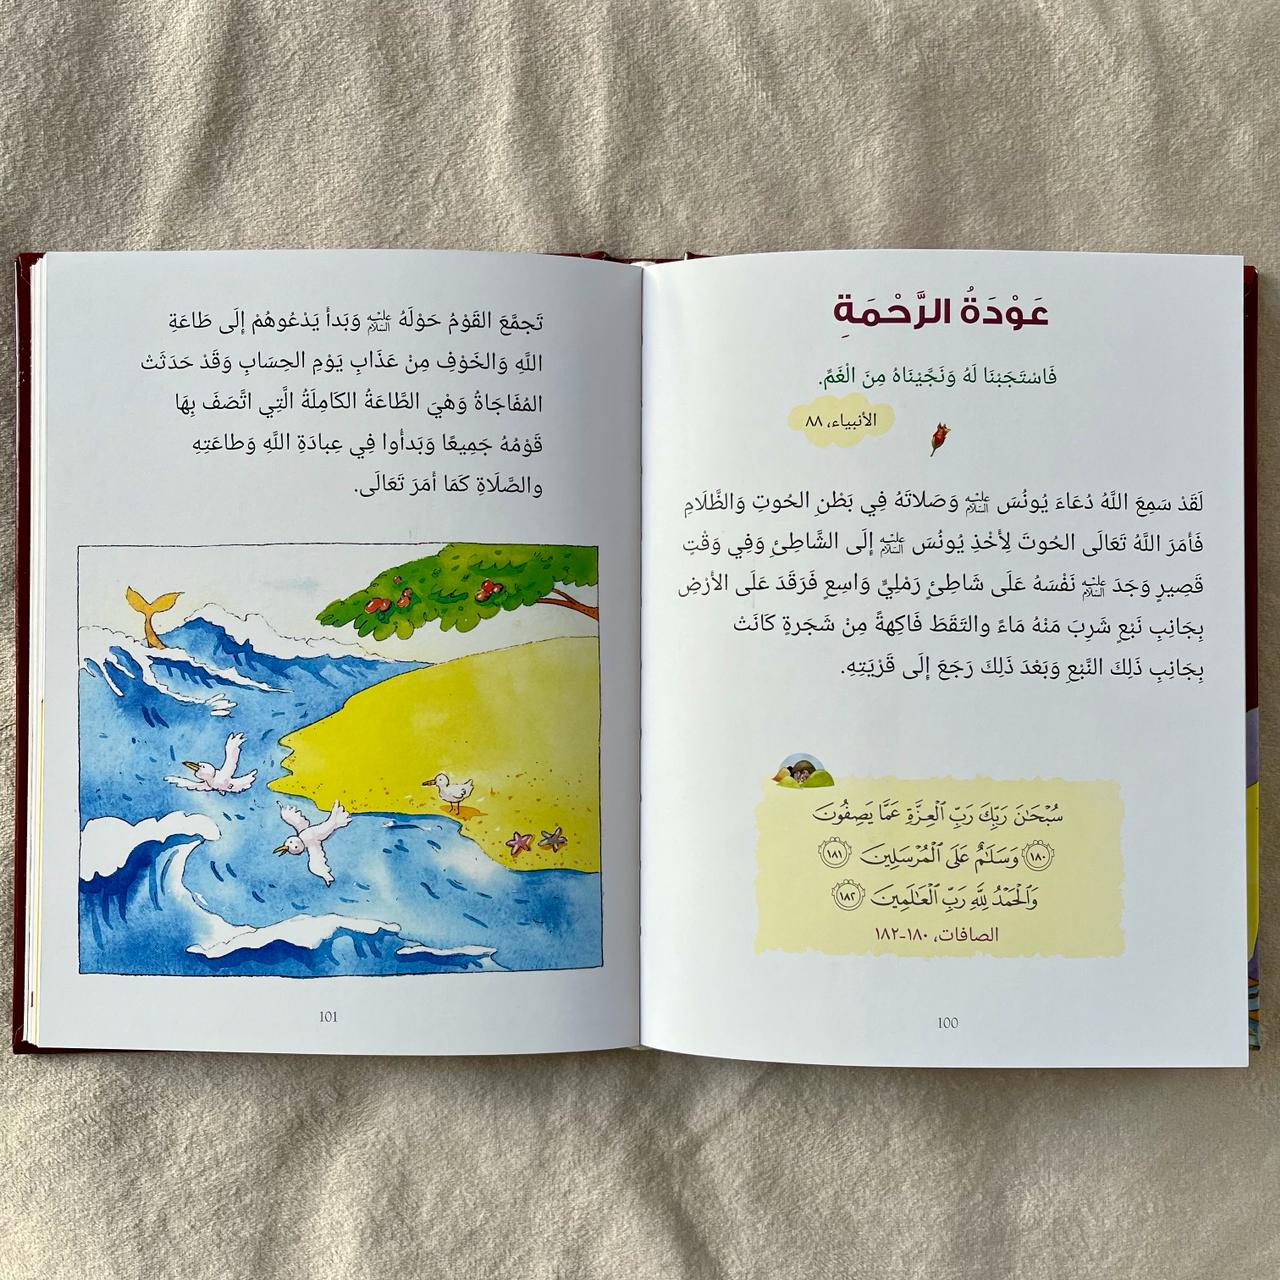 عَوْدَةُ الرَّحْمَةِ
فَاسْتَجَبْنَا لَهُ وَنَجَّيْنَاهُ مِنَ الْغَمِّ.
الأنبياء، ٨٨
لَقَدْ سَمِعَ اللَّهُ دُعَاءَ يُونُسَ عليه السلام وَصَلاتَهُ فِي بَطْنِ الحُوتِ وَالظَّلَامِ
فَأمَرَ اللَّهُ تَعَالَى الحُوتَ لِأخْذِ يُونُسَ عليه السلام إِلَى الشَّاطِئِ وَفِي وَقْتٍ
قَصِيرٍ وَجَدَ عليه السلام نَفْسَهُ عَلَى شَاطِئٍ رَمْلِيٍّ وَاسِعٍ فَرَقَدَ عَلَى الأرْضِ
بِجَانِبِ نَبْعٍ شَرِبَ مَنْهُ مَاءً والتَقَطَ فَاكِهةً مِنْ شَجَرةٍ كَانَتْ
بِجَانِبِ ذَلِكَ النَّبْعِ وَبَعْدَ ذَلِكَ رَجَعَ إِلَى قَرْيَتِهِ.
سُبْحَٰنَ رَبِّكَ رَبِّ ٱلْعِزَّةِ عَمَّا يَصِفُونَ
١٨٠ وَسَلَٰمٌ عَلَى ٱلْمُرْسَلِينَ ١٨١
وَٱلْحَمْدُ لِلَّهِ رَبِّ ٱلْعَٰلَمِينَ ١٨٢
الصافات، ١٨٠-١٨٢
100
تَجمَّعَ القَوْمُ حَوْلَهُ عليه السلام وَبَدأ يَدْعُوهُمْ إِلَى طَاعَةِ
اللَّهِ وَالخَوْفِ مِنْ عَذَابِ يَوْمِ الحِسَابِ وَقَدْ حَدَثَتْ
المُفَاجَاةُ وَهْيَ الطَّاعَةُ الكَامِلَةُ الَّتِي اتَّصَفَ بِهَا
قَوْمُهُ جَمِيعًا وَبَدأُوا فِي عِبادَةِ اللَّهِ وَطاعَتِهِ
والصَّلَاةِ كَمَا أمَرَ تَعَالَى.
101